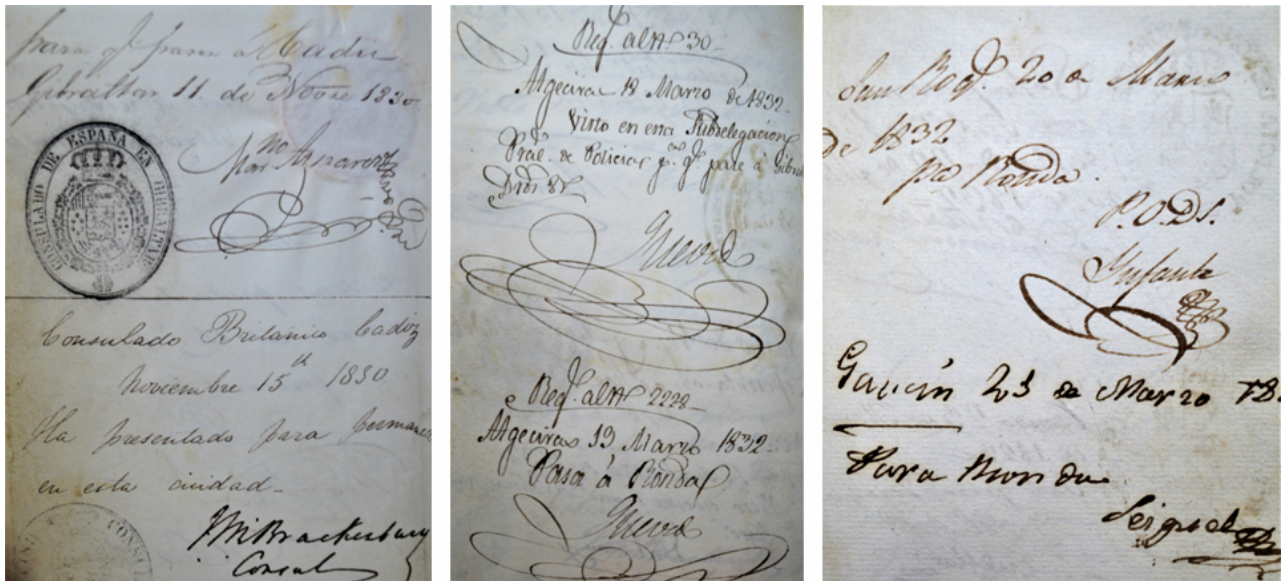 para qe pase a Cadiz
Gibraltar 11 de Novre 1830
CONSULADO DE ESPAÑA EN GIBRALTAR
Consulado Britanico Cadiz
Noviembre 15th 1830
Ha presentado para
en esta ciudad-
JM Brackenbury
Consul
CONSUL
Reg. al Nº 30
Algeciras 18 Marzo de 1832
Visto en esta Subdelegacion
Pral. de Policia pa. qe. pase á Gibral
Reg. al Nº 2228
Algeciras 19 Marzo 1832
Pasa á Ronda
San Roqe. 20 de Marzo
De 1832
pa Ronda.
P.O.DS.
Infante
Gaucin 23 de Marzo
Para Ronda